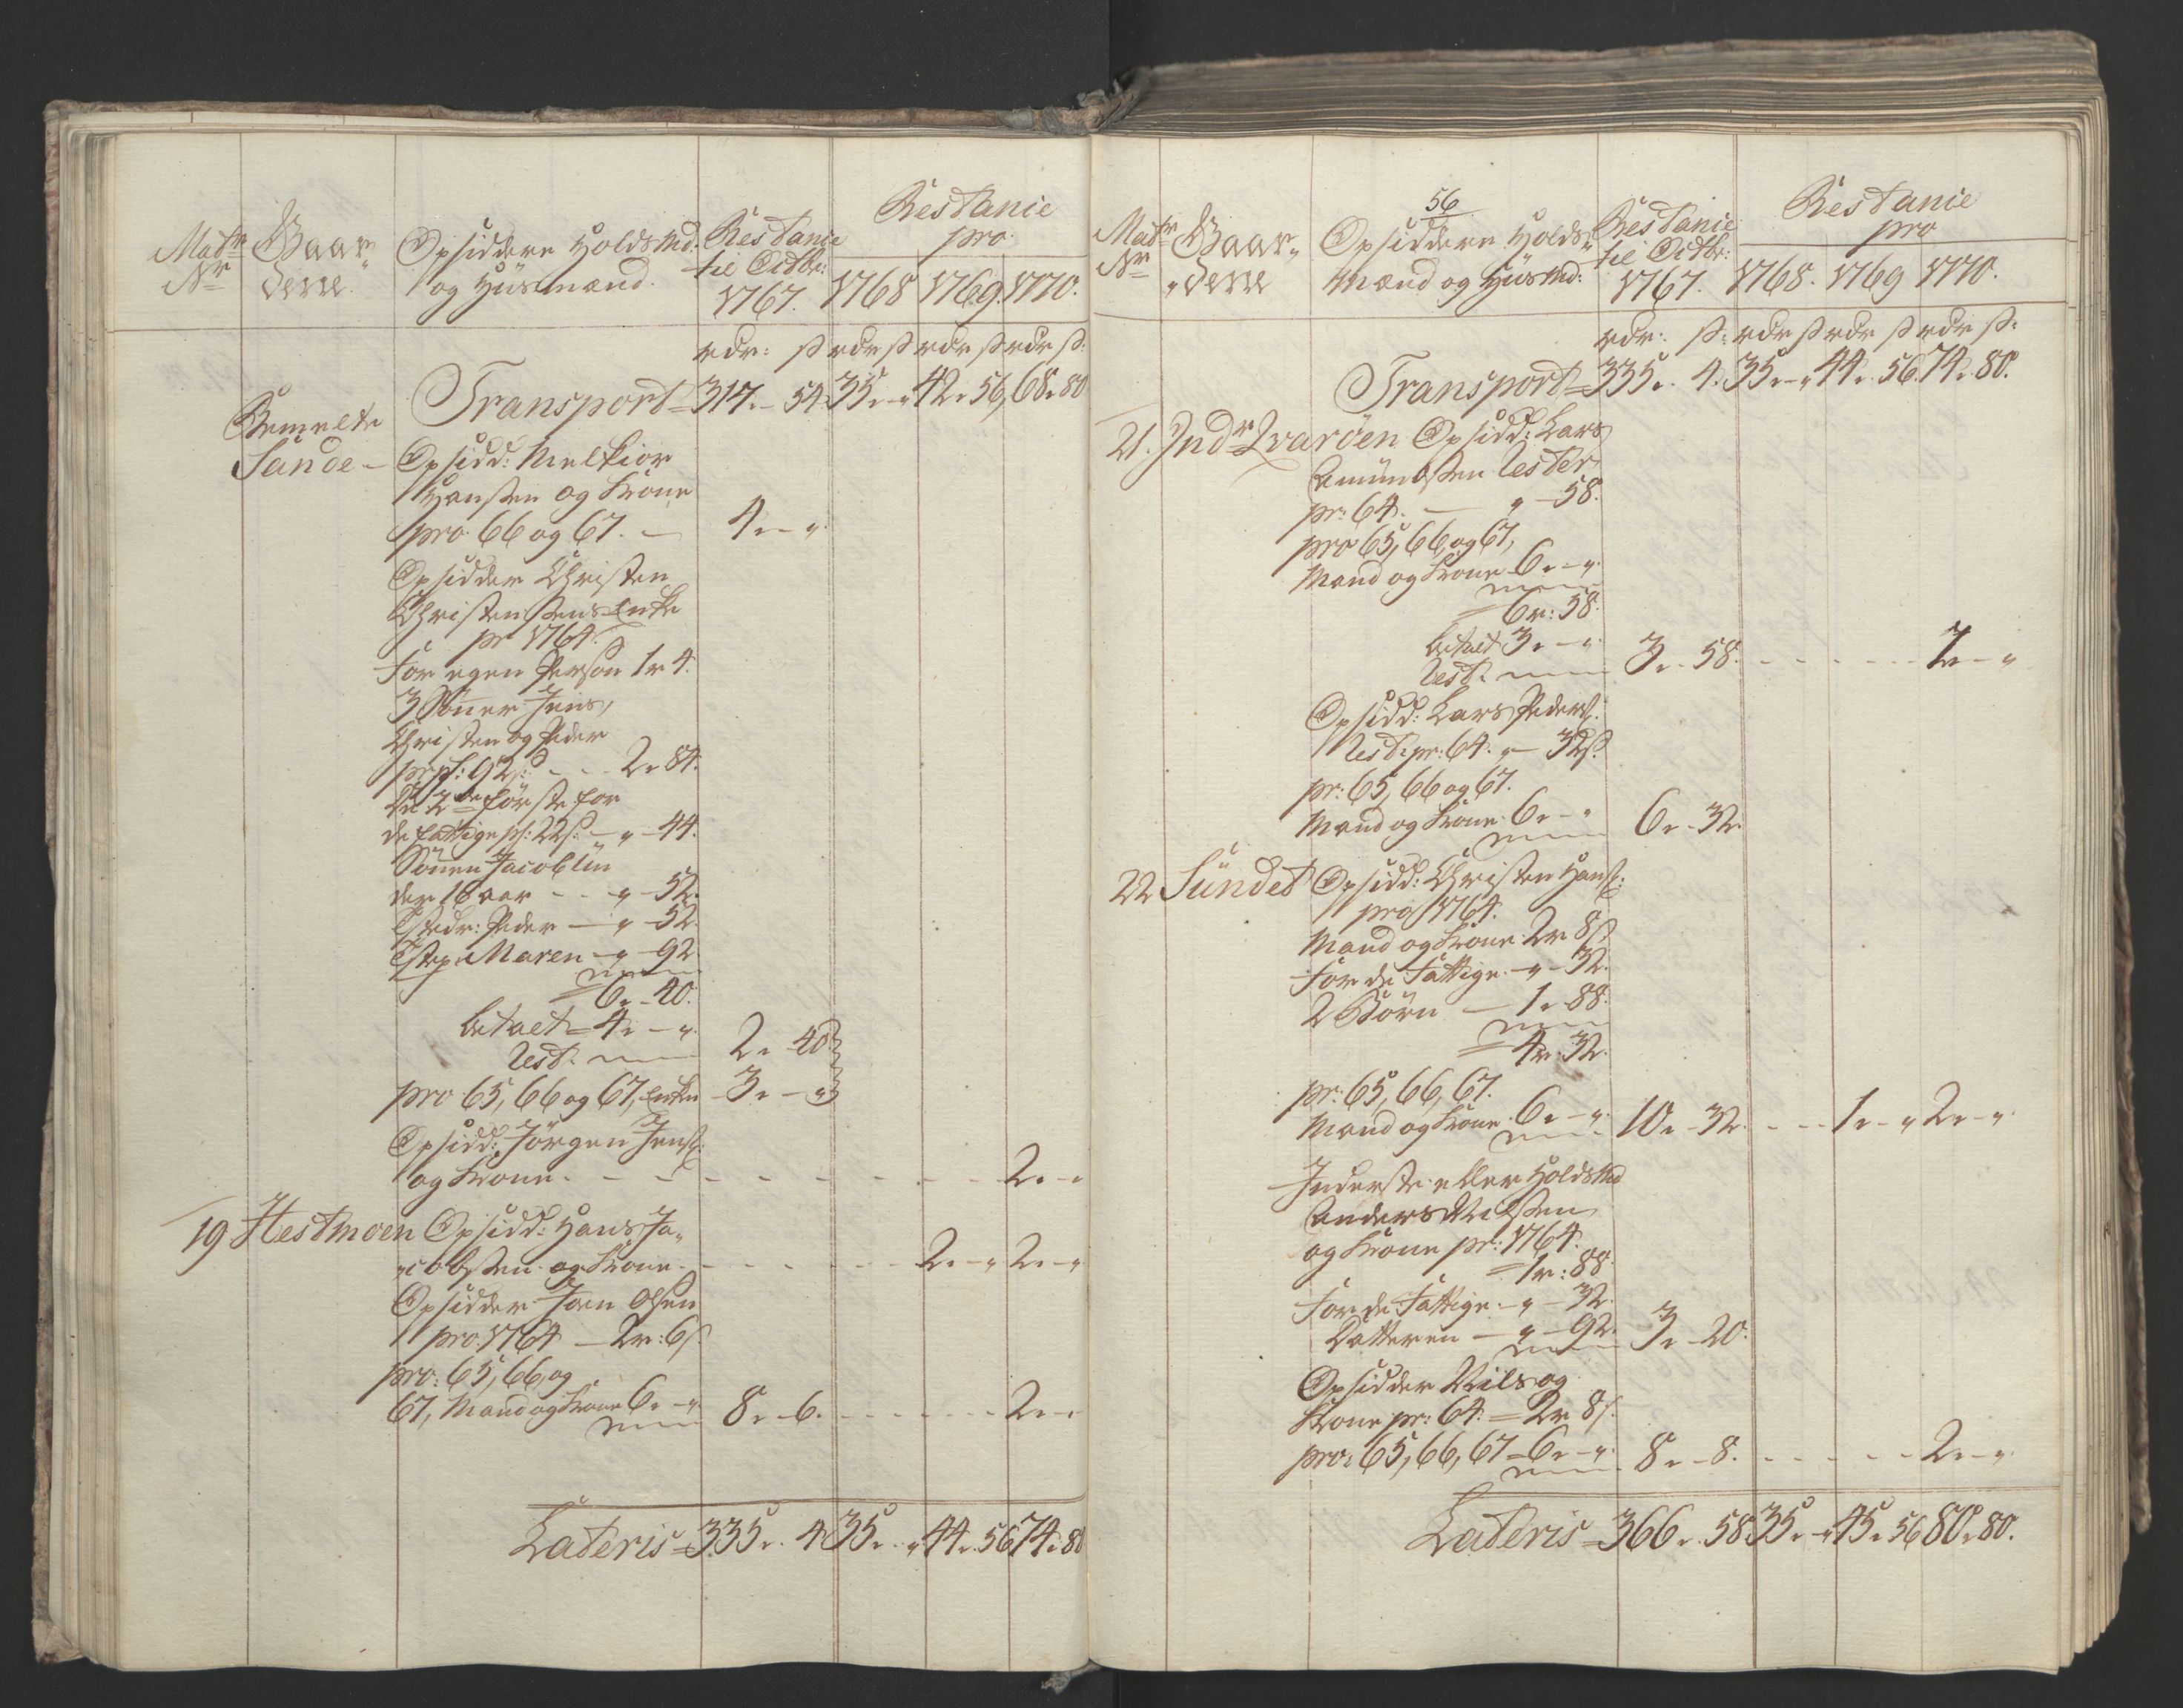 Matr Nr
Gaar„
dene.
Opsiddere Holdsmd:
og Huusmænd.
Restance
til Octbr:
1767.
Restance
pro.
1768 1769. 1770.
rdr: ß rdr ß rdr ß rdr ß:
Transport = 317. - 54. 35. - „ 42. 56, 68. 80
Bemelte
Sande -
Opsidd: Melkior
Hansen og Kone
pro 66 og 67. - 4. - „
Opsidder Christen
Christensens Enke
pr 1764.
For egen Person 1 r 4.
3 Sönner Jens,
Christen og Peder
pr ps: 92 ß: - - 2. 84.
De 2de förste for
de fattige ps: 22 ß: - „ - 44.
Sönnen Jacob un
der 16 aar - - „ - 52.
Peder - „ - 52
Maren - „ - 92
= 6. - 40.
betalt = 4. - „.
Rest. 2. - 40
pro 65, 66 og 67, Enken 3. - „
Opsidd: Jörgen Jens:
og Kone. - - - - - - - - 2. - „
19 Hestmoen Opsidd: Hans Ja„
„cobsen og Kone - - - - - - 2. - „ 2. - „
Opsidder Joen Olsen
pro 1764 - 2 r: 6 ß.
pro: 65, 66, og
67, Mand og Kone 6. - „ 8. - 6. - - - - - - 2. - „
Lateris = 335. . 4 35. . „ 44. 56 74. 80
56
Matr Nr
Gaar„
„dene
Opsiddere Holds„
mænd og Huusmd:
Restance
til Octbr:
1767.
Restance
pro
1768. 1769 1770.
rdr: ß: rdr ß rdr ß rdr ß:
Transport = 335. . 4. 35. - „ 44. 56. 74. 80.
21. Indr Qvaröen Opsidd: Lars
Amundsen Rester
pr: 64. - „ - 58.
pro 65, 66, og 67,
Mand og Kone 6. - „.
= 6 r: 58.
betalt 3. - „.
Rest. 3. - 58. - - - - - - 2. - „
Opsidd: Lars Peders:
Rest. pr: 64. „ - 32 ß.
pr: 65, 66 og 67.
Mand og Kone 6. - „ 6. - 32.
22 Sundet Opsidd: Christen Hans:
pro 1764.
Mand og Kone 2 r 8 ß
For de Fattige. - „ - 32.
2 Börn - 1. 88.
= 4 r. 32.
pr: 65, 66, 67.
Mand og Kone 6. - „. 10. - 32. - - - 1. - „ 2. - „.
Inderste eller Holdsmd
Anders Nilsen
og Kone pr: 1764.
= 1 r: 88.
For de Fattige - „ - 32.
Datteren - „ - 92. 3. - 20.
Opsidder Nils og
Kone pr: 64. = 2 r 8 ß.
pro: 65, 66, 67 = 6. - „. 8. - 8. - - - - - 2. - „.
Lateris = 366. . 58. 35. - „ 45. 56 80. 80.